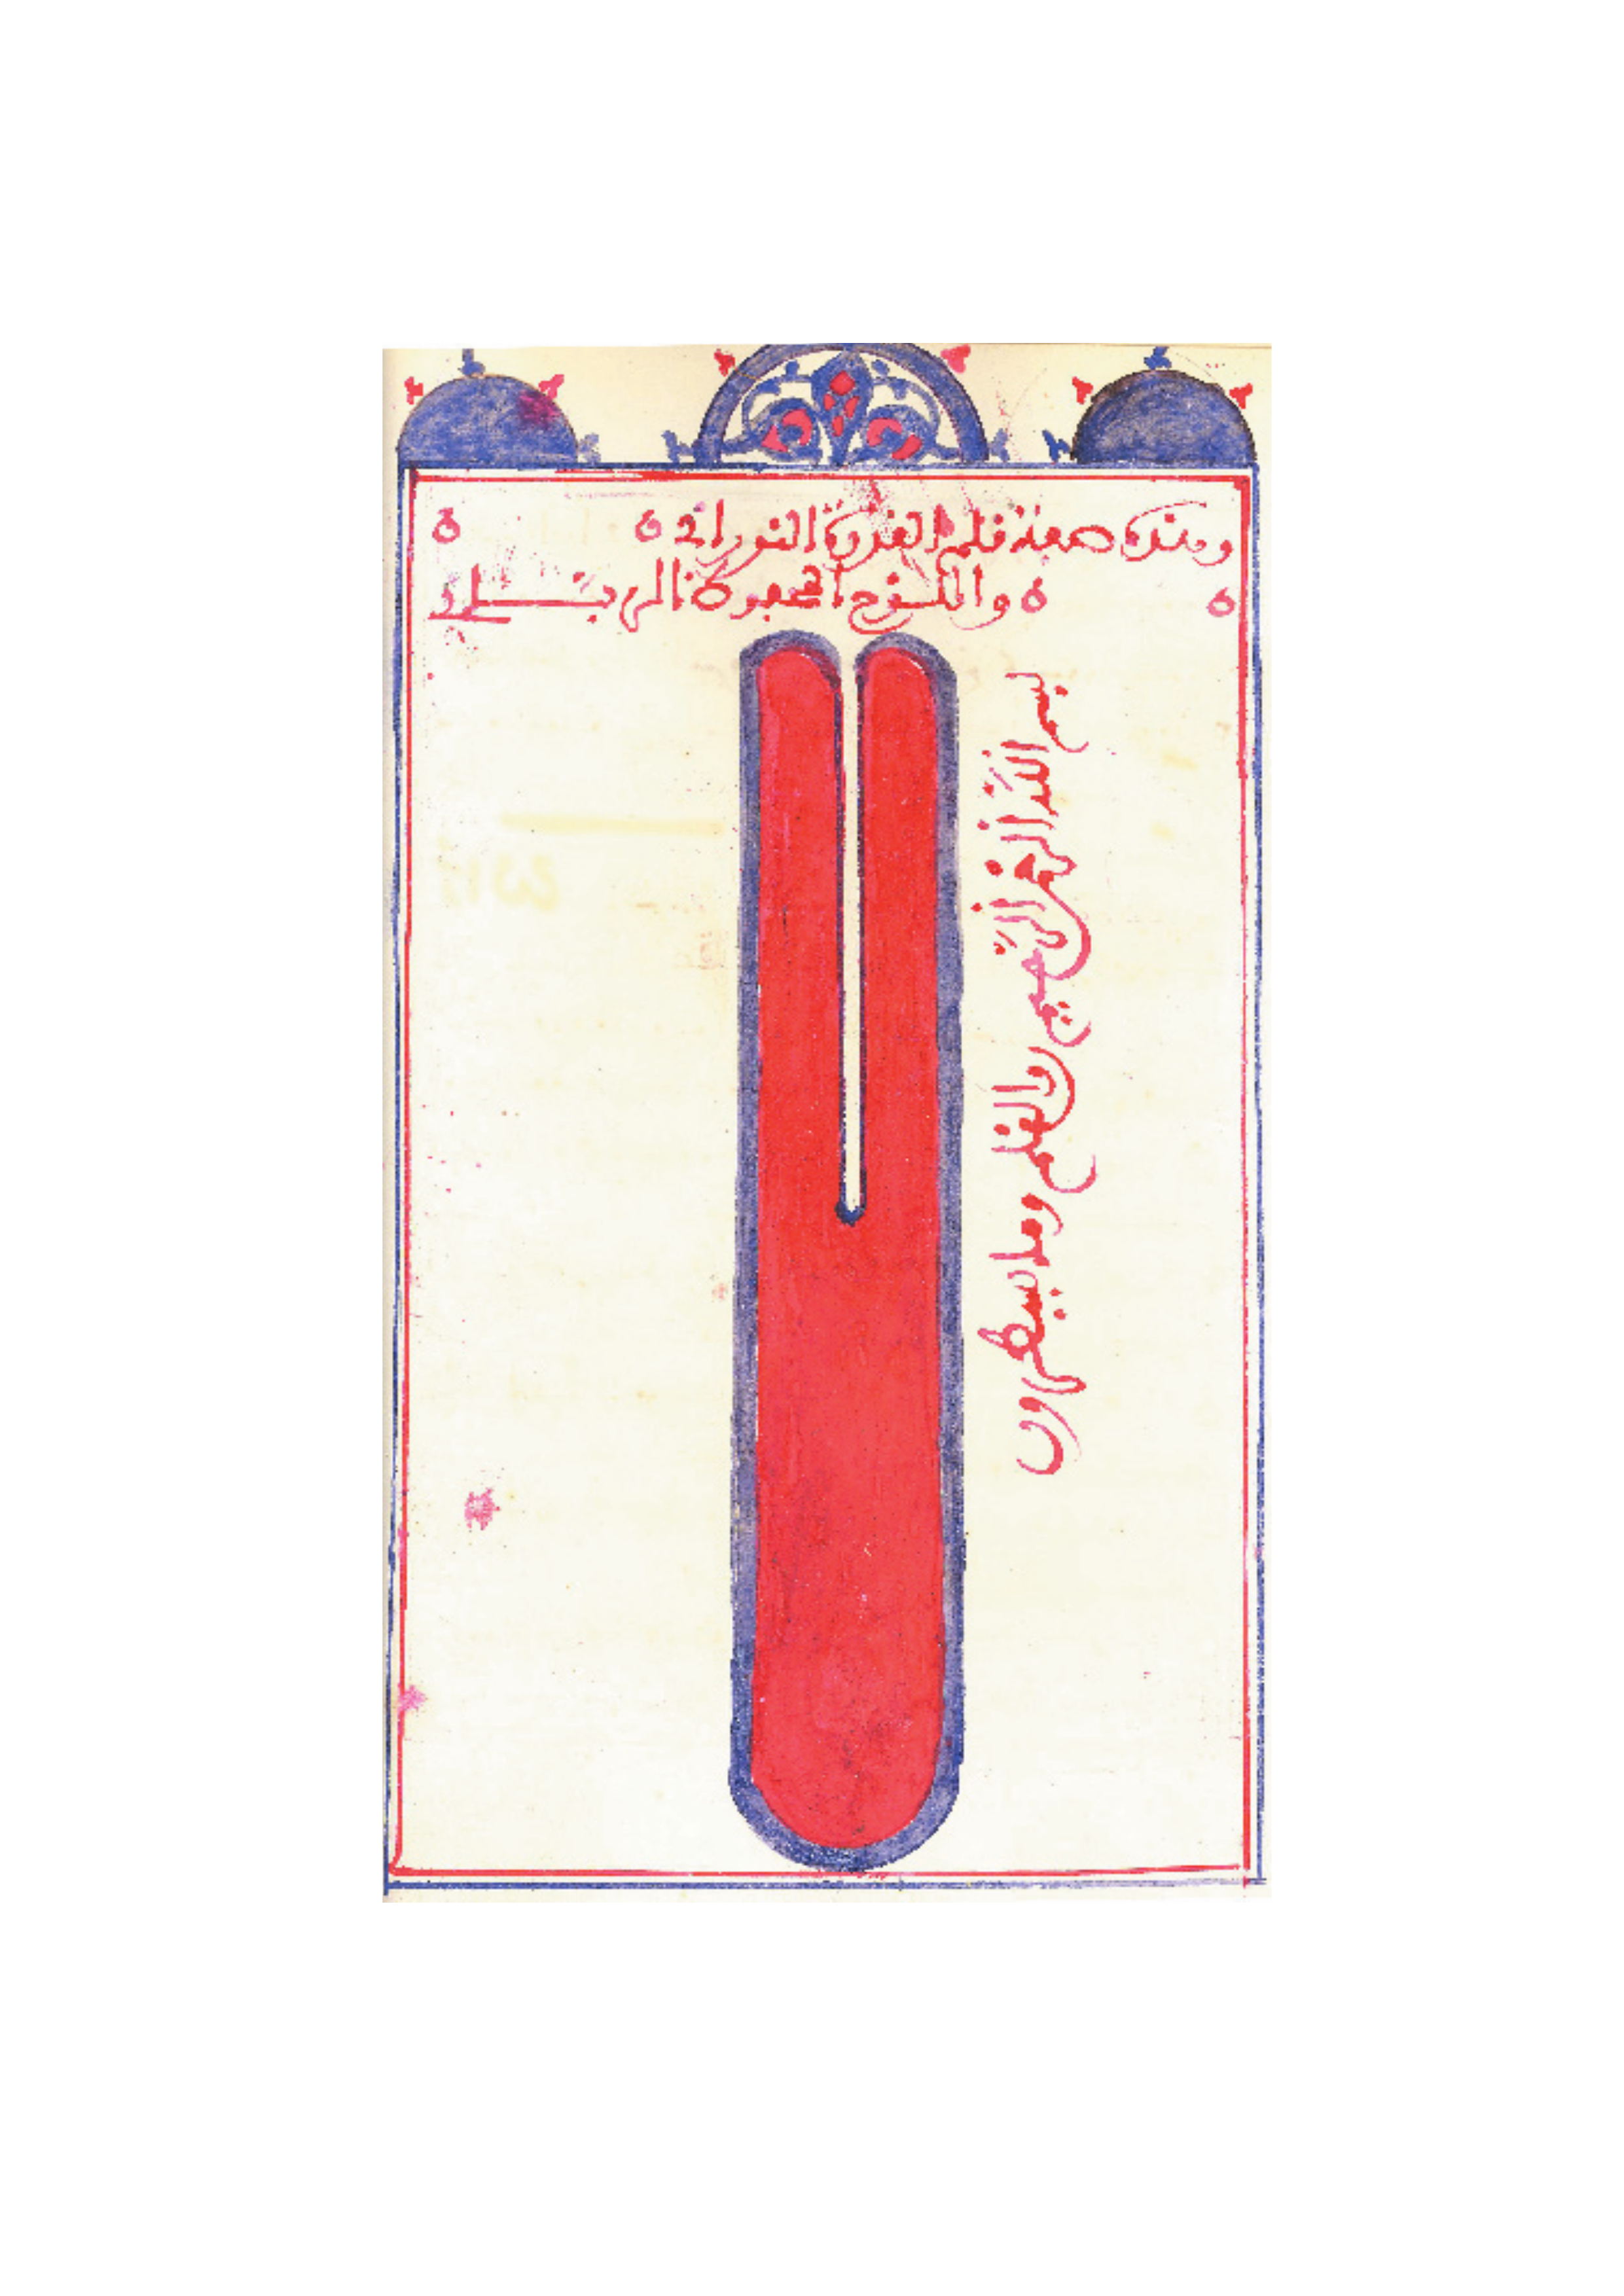 وهذه صفة قلم القدرة النوراني
واللوح المحفوظ
بسم الله الرحمن الرحيم ن والقلم وما يسطرون